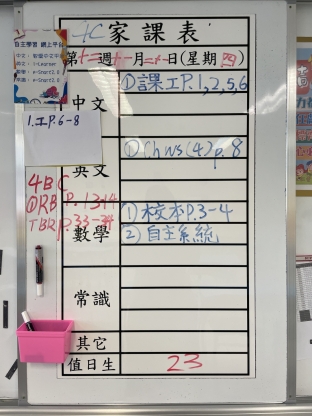 4C 家課表
自主學習 網上平台
第十二週十一月二十日(星期四)
中文 ①課工P.1,2,5,6
1.工P.6-8
英文 ① Ch ws (4) p.8
4B C
①RB P.13-14
TBR p.33-34
數學 ①校本P.3-4
②自主系統
常識
其它
值日生 23